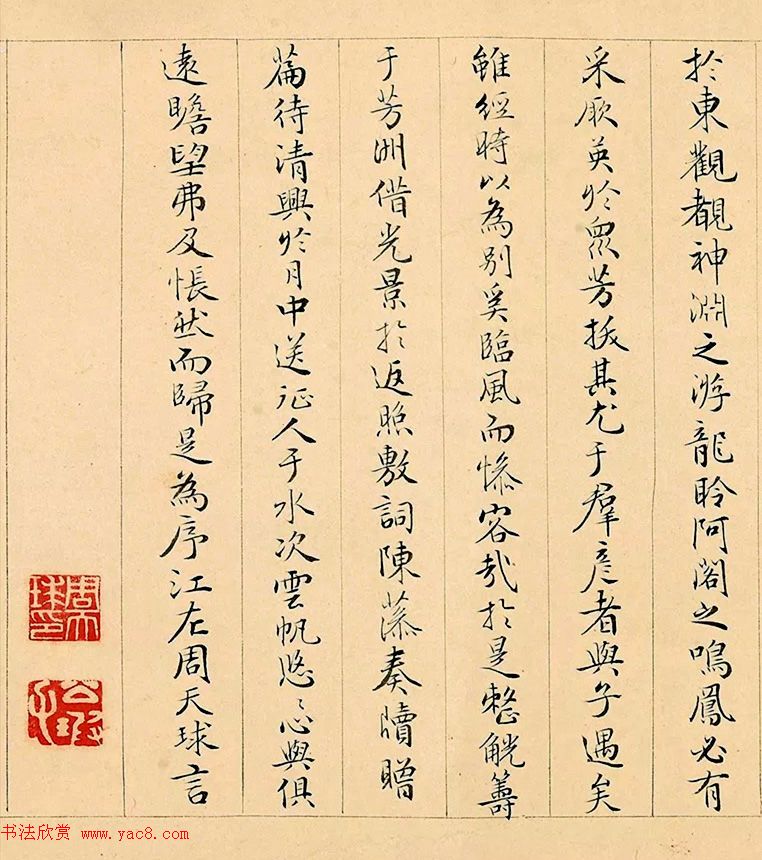 於東觀覩神淵之游龍聆阿閣之鳴鳳必有
采厥英於眾芳拔其尤于羣彥者與子遇矣
雖經時以為別奚臨風而慘容哉於是整觥籌
于芳洲借光景於返照敷詞陳藻奏牘贈
篇待清興於月中送征人于水次雲帆悠〻心與俱
遠瞻望弗及悵然而歸是為序江左周天球言
周天球印
公瑕
书法欣赏 www.yac8.com